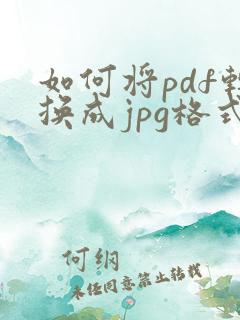 如何将pdf转
换成jpg格式
何纲
未经同意禁止转载